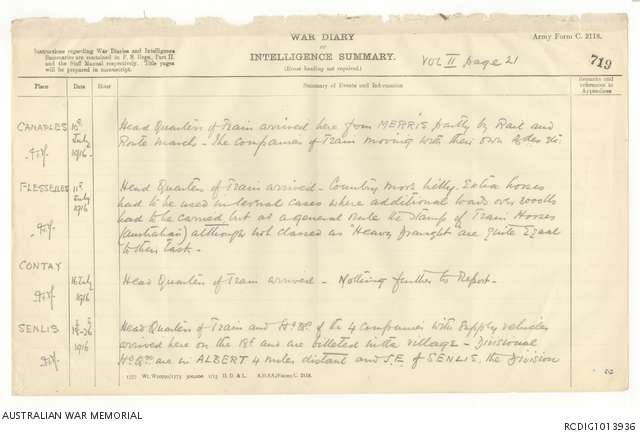 WAR DIARY
or
INTELLIGENCE SUMMARY.
(Erase heading not required.)
Army Form C. 2118.
Instructions regarding War Diaries and Intelligence
Summaries are contained in F. S. Regs., Part II.
and the Staff Manual respectively. Title pages
will be prepared in manuscript.
VOL II page 21
719
Place Date Hour Summary of Events and Information Remarks and references to Appendices
CANAPLES 10th July 1916 Head Quarters of Train arrived here from MERRIS partly by Rail and
Route March - The companies of Train moving with their own
FLESSELLES 11th July 1916 Head Quarters of Train arrived - Country more hilly. Extra horses
had to be used in several cases where additional loads over
had to be carried but as a general rule the Stamp of Train Horses
(Australian) although not classed as "Heavy Draught" are quite equal
to their task -
CONTAY 16 July 1916 Head Quarters of Train arrived - Nothing further to Report -
SENLIS 1916 Head Quarters of Train and of the 4 companies with Supply vehicles
arrived here on the 18t and are billeted in the village - Divisional
Hd Qrs are in ALBERT 4 miles distant and S.E. of SENLIS, the Division
D. D. & L. A.D.S.S./Forms/C. 2118.
AUSTRALIAN WAR MEMORIAL
RCDIG1013936